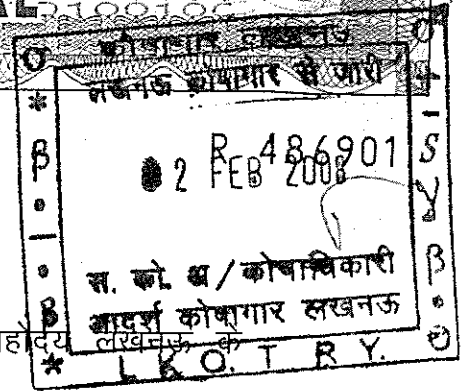 कोषागार लखनऊ
लखनऊ कोषागार से जारी
R 486901
2 FEB 2008
स. को. अ / कोषाधिकारी
आदर्श कोषागार लखनऊ
लखनऊ के
L K O. T R Y.